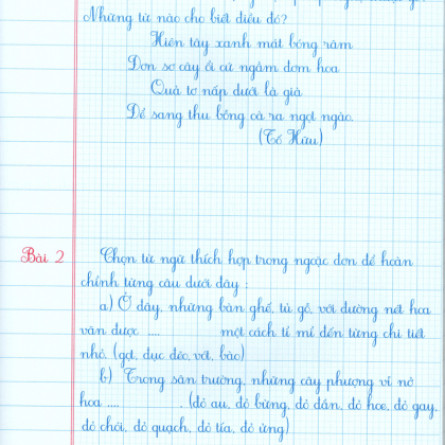 Những từ nào cho biết điều đó?
Hiên tây xanh mát bóng râm
Đơn sơ cây ngậm đơm hoa
Quả tơ nấp dưới lá già
Để sang thu bỗng cà ra ngọt ngào
(Tố Hữu)
Bài 2 Chọn từ ngữ thích hợp trong ngoặc đơn để hoàn
chỉnh từng câu dưới đây :
a) Ở đây, những bàn ghế, tủ gỗ, với đường nét hoa
văn được .... một cách tỉ mỉ đến từng chi tiết
nhỏ. (gọt, đục đẽo, vót, bào)
b) Trong sân trường, những cây phượng vĩ nở
hoa .... (đỏ au, đỏ bừng, đỏ đắn, đỏ hoe, đỏ gay,
đỏ chói, đỏ quạch, đỏ tía, đỏ ửng)